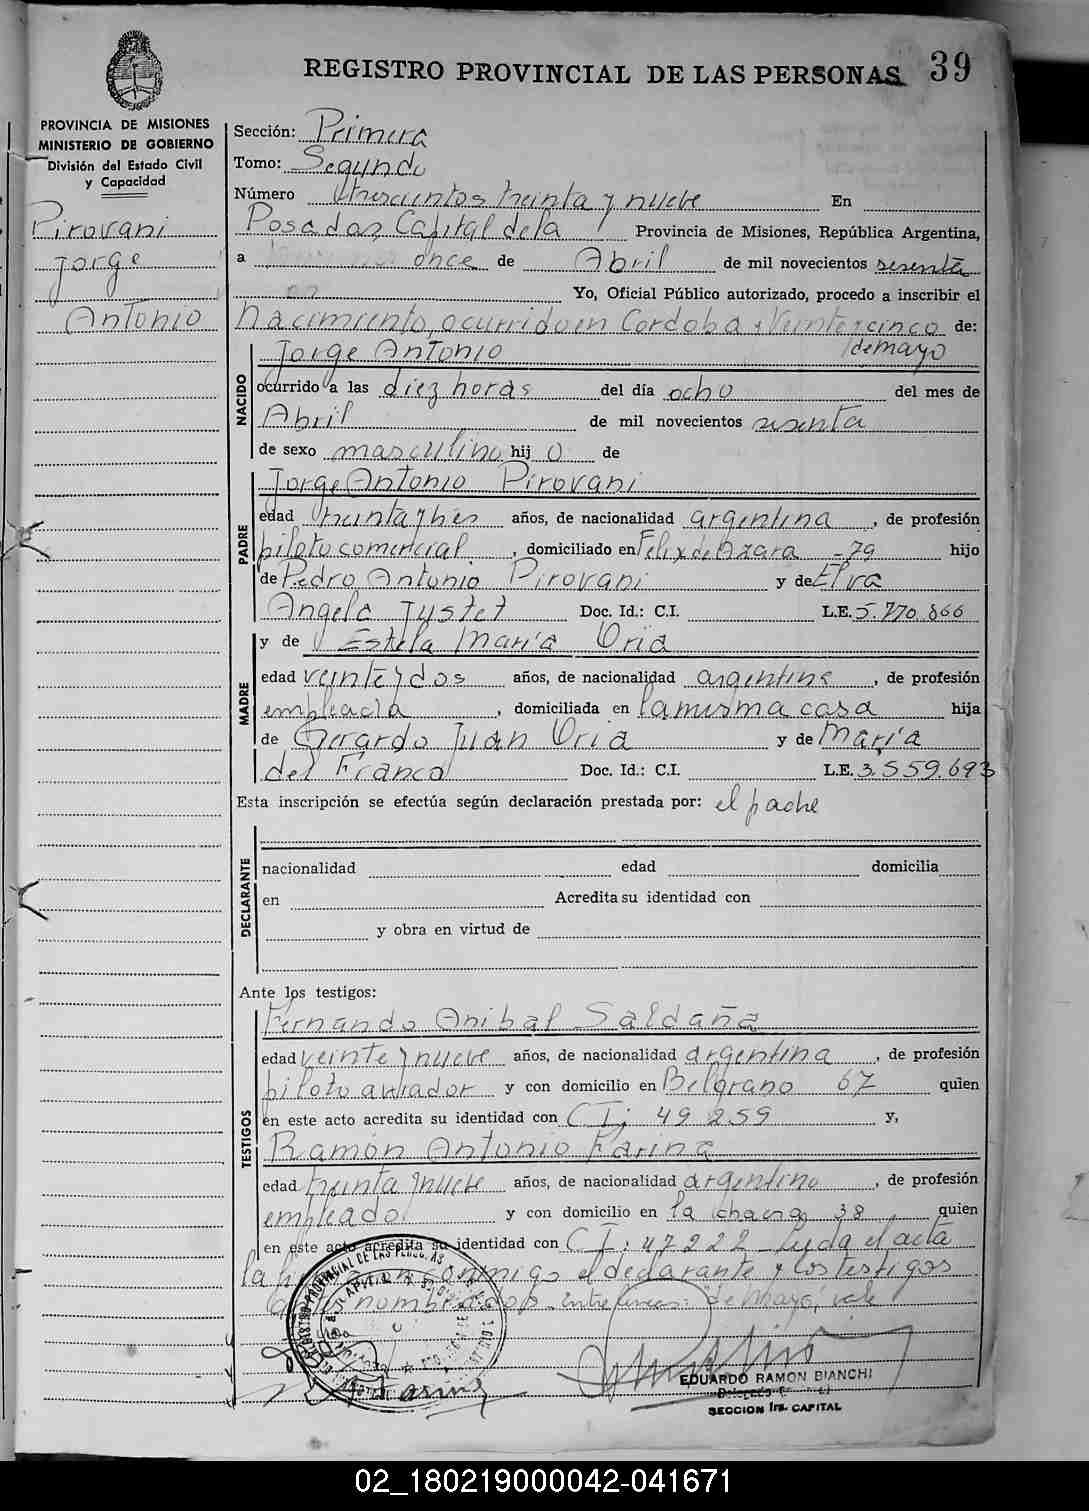 REGISTRO PROVINCIAL DE LAS PERSONAS 39
PROVINCIA DE MISIONES
MINISTERIO DE GOBIERNO
División del Estado Civil
y Capacidad
Pirovani
Jorge
Antonio
Sección: Primera
Tomo: Segundo
Número trescientos treinta y nueve En
Posadas Capital de la Provincia de Misiones, República Argentina,
a once de Abril de mil novecientos sesenta
Yo, Oficial Público autorizado, procedo a inscribir el
nacimiento, ocurrido en Cordoba y Veinticinco de:
de mayo
Jorge Antonio
NACIDO
ocurrido a las diez horas del día ocho del mes de
Abril de mil novecientos sesenta
de sexo masculino hij o de
Jorge Antonio Pirovani
PADRE
edad treinta y tres años, de nacionalidad argentina, de profesión
piloto comercial, domiciliado en Felix de Azara - 79 hijo
de Pedro Antonio Pirovani y de Elva
Angela Justet Doc. Id.: C.I. L.E. 5.770.866
y de Estela María Oria
MADRE
edad veinte y dos años, de nacionalidad argentina, de profesión
empleada, domiciliada en la misma casa hija
de Gerardo Juan Oria y de María
del Franco Doc. Id.: C.I. L.E. 3.559.693
Esta inscripción se efectúa según declaración prestada por: el padre
DECLARANTE
nacionalidad edad domicilia
en Acredita su identidad con
y obra en virtud de
Ante los testigos:
Fernando Anibal Saldaña
TESTIGOS
edad veinte y nueve años, de nacionalidad argentina, de profesión
piloto aviador y con domicilio en Belgrano 67 quien
en este acto acredita su identidad con C I: 49 259 y,
Ramón Antonio Farina
edad treinta y nueve años, de nacionalidad argentino, de profesión
empleado y con domicilio en la chacra 38 quien
en este acto acredita su identidad con C I: 47222 Leida el acta
la conmigo el declarante y los testigos
nombrados Entre lineas: de mayo, vale
EDUARDO RAMON BIANCHI
SECCION 1ra. CAPITAL
02_180219000042-041671